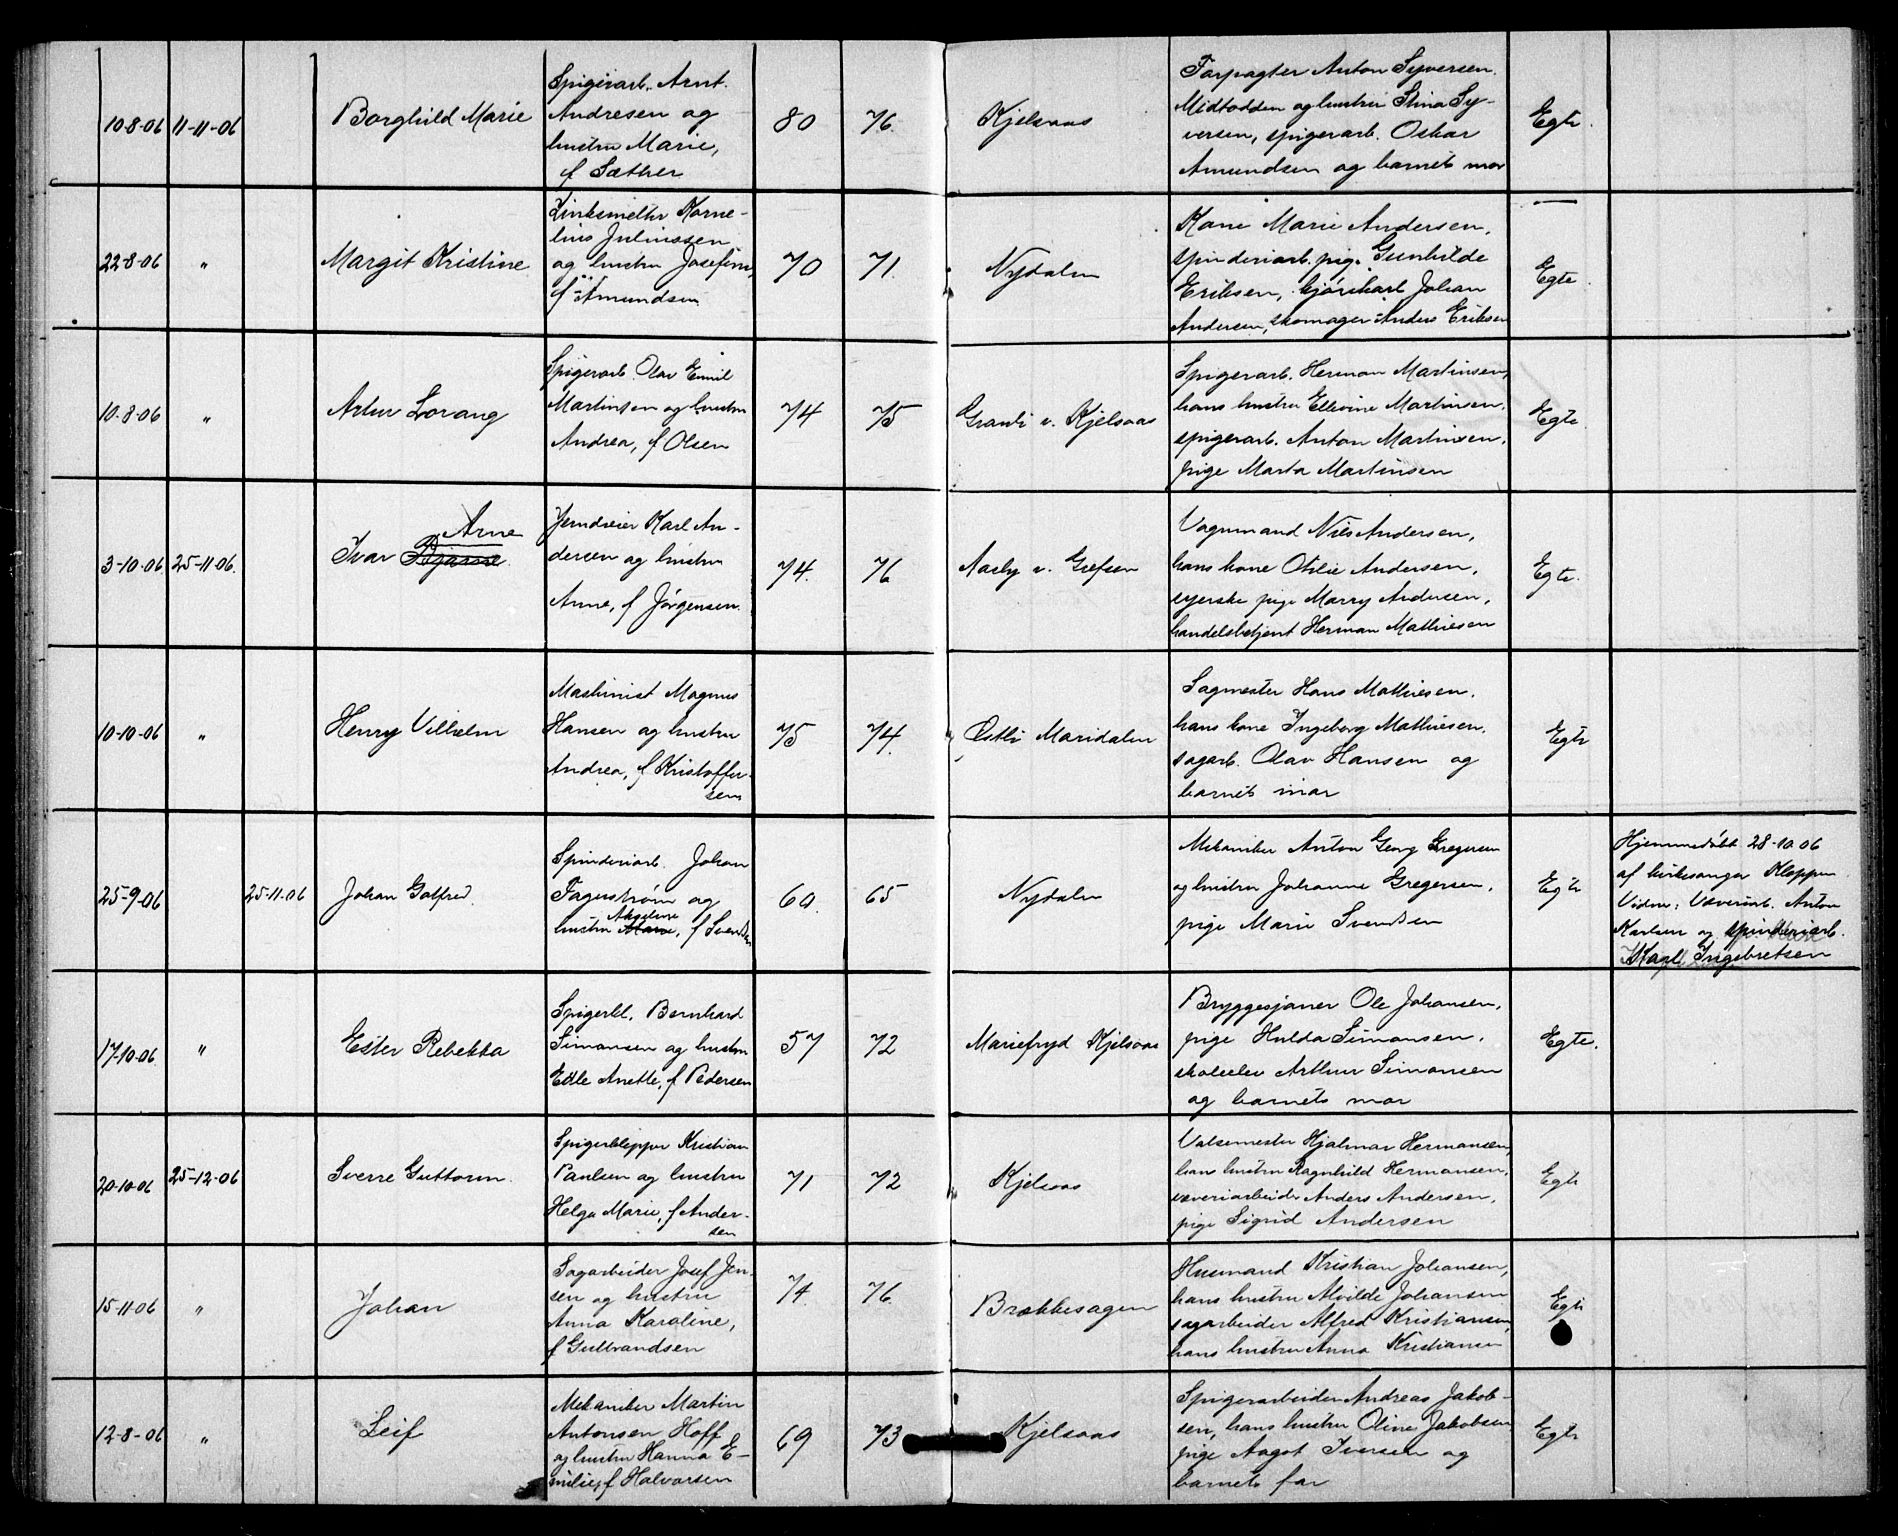 10-8-06 11-11-06 Borghild Marie
Spigerarb. Arnt
Andresen og
hustru Marie,
f Sæther
80 76.
Kjelsaas
Forpagter Anton Syversen.
Midtodden og hustru Stina Sy-
versen, spigerarb. Oskar
Amundsen og barnets mor
Egte
22-8-06 " Margit Kristine
Zinksmelter Korne-
lius Juliussen
og hustru Josefine,
f Amundsen
70 71.
Nydalen
Kone Marie Andersen,
spinderiarb. pige Gunhilde
Eriksen, kjørekarl Johan
Andersen, skomager Anders Eriksen
Egte.
10-8-06 " Artur Lorang
Spigerarb. Olav Emil
Martinsen og hustru
Andrea, f Olsen
74 75
v. Kjelsaas
Spigerarb. Herman Martinsen,
hans hustru Ellevine Martinsen,
spigerarb. Anton Martinsen,
pige Marta Martinsen
Egte.
3-10-06 25-11-06. Ivar Bjarne Arne
Jerndreier Karl An-
dersen og hustru
Anna, f Jørgensen.
74. 76
Aasly v. Grefsen
Vognmand Nils Andersen,
hans kone Otilie Andersen,
syerske pige Marry Andersen,
handelsbetjent Herman Mathiesen
Egte.
10-10-06 " Henry Vilhelm
Maskinist Magnus
Hansen og hustru
Andrea, f Kristoffer-
sen
75 74.
Østli Maridalen
Sagmester Hans Mathiesen,
hans kone Ingeborg Mathiesen,
sagarb. Olav Hansen og
barnets mor
Egte
25-9-06 25-11-06 Johan Gotfred.
Spinderiarb. Johan
Fagerstrøm og
hustru Marie Akseline, f Svendsen
60. 65
Nydalen
Mekaniker Anton Georg Gregersen
og hustru Johanne Gregersen,
pige Marie Svendsen
Egte
Hjemmedøbt 28-10 06
af kirkesanger Kloppen.
Vidne: Væveriarb. Anton
Karlsen og spinderiarb.
Karl Ingebretsen
17-10-06. " Ester Rebekka
Spigerkl. Bernhard
Simonsen og hustru
Edle Anette, f Pedersen
57 72
Mariefryd Kjelsaas
Bryggesjauer Ole Johansen,
pige Hulda Simonsen,
skoleelev Arthur Simonsen
og barnets mor
Egte.
20-10-06 25-12-06 Sverre Guttorm.
Spigerklipper Kristian
Paulsen og hustru
Helga Marie, f Ander-
sen
71 72
Kjelsaas
Valsemester Hjalmar Hermansen,
hans hustru Ragnhild Hermansen,
væveriarbeider Anders Andersen,
pige Sigrid Andersen
Egte
15-11-06 " Johan
Sagarbeider Josef Jen-
sen og hustru
Anna Karoline,
f Gulbrandsen
74. 76.
Brækkesagen
Husmand Kristian Johansen,
hans hustru Alvilde Johansen
sagarbeider Alfred Kristiansen,
hans hustru Anna Kristiansen
Egte
12-8-06 " Leif
Mekaniker Martin
Antonsen Hoff
og hustru Hanna E-
milie, f Halvorsen
69 73
Kjelsaas
Spigerarbeider Andreas Jakob-
sen, hans hustru Oline Jakobsen
pige Aagot Iversen og
barnets far
Egte